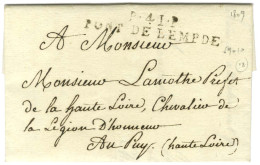 P.41.P
PONT DE LEMPDE
1809
A Monsieur
Monsieur Lamothe Prefet
de la haute Loire, Chevalier de
la Légion D'honneur
Au Puy (haute Loire)